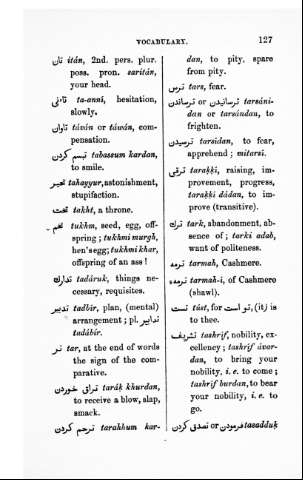 VOCABULARY.
127
تان itán, 2nd. pers. plur.
poss. pron. saritán,
your head.
تأنى ta-anní, hesitation,
slowly.
تاوان távún or táwán, com-
pensation.
تبسم کردن tabassum kardan,
to smile.
تحير tahayyur, astonishment,
stupifaction.
تخت takht, a throne.
تخم tukhm, seed, egg, off-
spring; tukhmi murgh,
hen's egg; tukhmi khar,
offspring of an ass!
تدارك tadáruk, things ne-
cessary, requisites.
تدبير tadbír, plan, (mental)
arrangement; pl. تدابير
tadábír.
تر tar, at the end of words
the sign of the com-
parative.
تراق خوردن tarák khurdan,
to receive a blow, slap,
smack.
ترحم کردن tarahhum kar-
dan, to pity. spare
from pity.
ترس tars, fear.
ترسانیدن or ترساندن tarsáni-
dan or tarsándan, to
frighten.
ترسیدن tarsidan, to fear,
apprehend; mitarsí.
ترقى tarakkí, raising, im-
provement, progress,
tarakkí dádan, to im-
prove (transitive).
ترك tark, abandonment, ab-
sence of; tarki adab,
want of politeness.
ترمه tarmah, Cashmere.
ترمهء tarmah-i, of Cashmere
(shawl).
تست túst, for تو است, (it) is
to thee.
تشریف tashríf, nobility, ex-
cellency; tashríf ávar-
dan, to bring your
nobility, i. e. to come;
tashríf burdan, to bear
your nobility, i. e. to
go.
تصدق کردن or فرمودن tasadduk